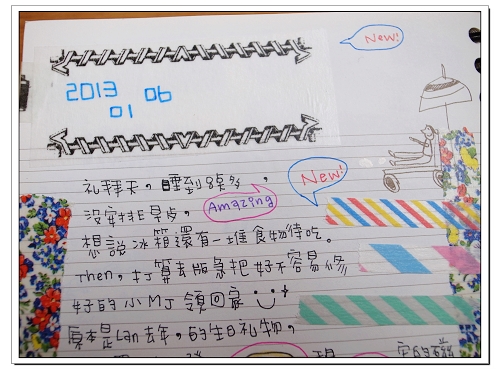 New!
2013
01 06
礼拜天，睡到8点多，
New!
沒安排早点，
Amazing
想說冰箱還有一堆食物待吃。
Then，打算去版急把好不容易修
好的小MJ領回家
原本是Lan去年，的生日礼物，